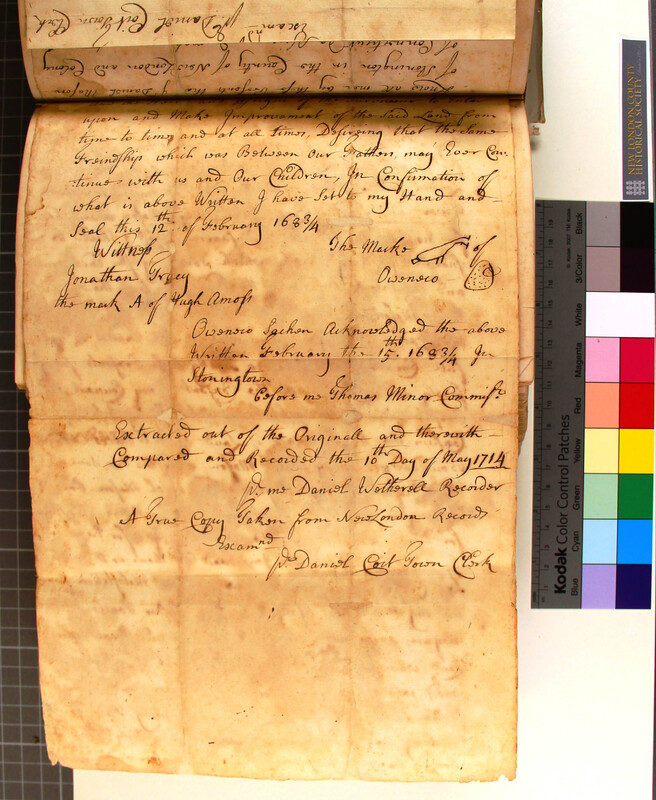 upon and Make Improvament of the said Land from
tyme to time and at all times, Desireing that the same
Freindship which was Between our Fathers, may Ever Con-
tinue with us and Our Children, In Confirmation of
what is above Written I have Set to my Hand and
Seal this 12th of February 168¾
Witness
The Marke of
Jonathan Tracy
Oweneco
the mark A of Hugh Amoss
Oweneco Sachem Acknowledged the above
Written February the 15th. 168¾ In
Stoningtown
before me Thomas Minor Commissr
Extracted out of the Originall and therewith
Compared and Recorded the 10th Day of May 1714
pr me Daniel Wetherell Recorder
A True Copy Taken from New London Records
Examnd
pr Daniel Coit Town Clerk
pr Daniel Coit Town Clerk
Examnd
of Stonington in the County of New London and Colony
Know all men by these Presents that I Daniel Mason
NEW LONDON COUNTY
HISTORICAL SOCIETY
Kodak Color Control Patches
© Kodak, 2007 TM: Kodak
Blue
Cyan
Green
Yellow
Red
Magenta
White
3/Color
Black